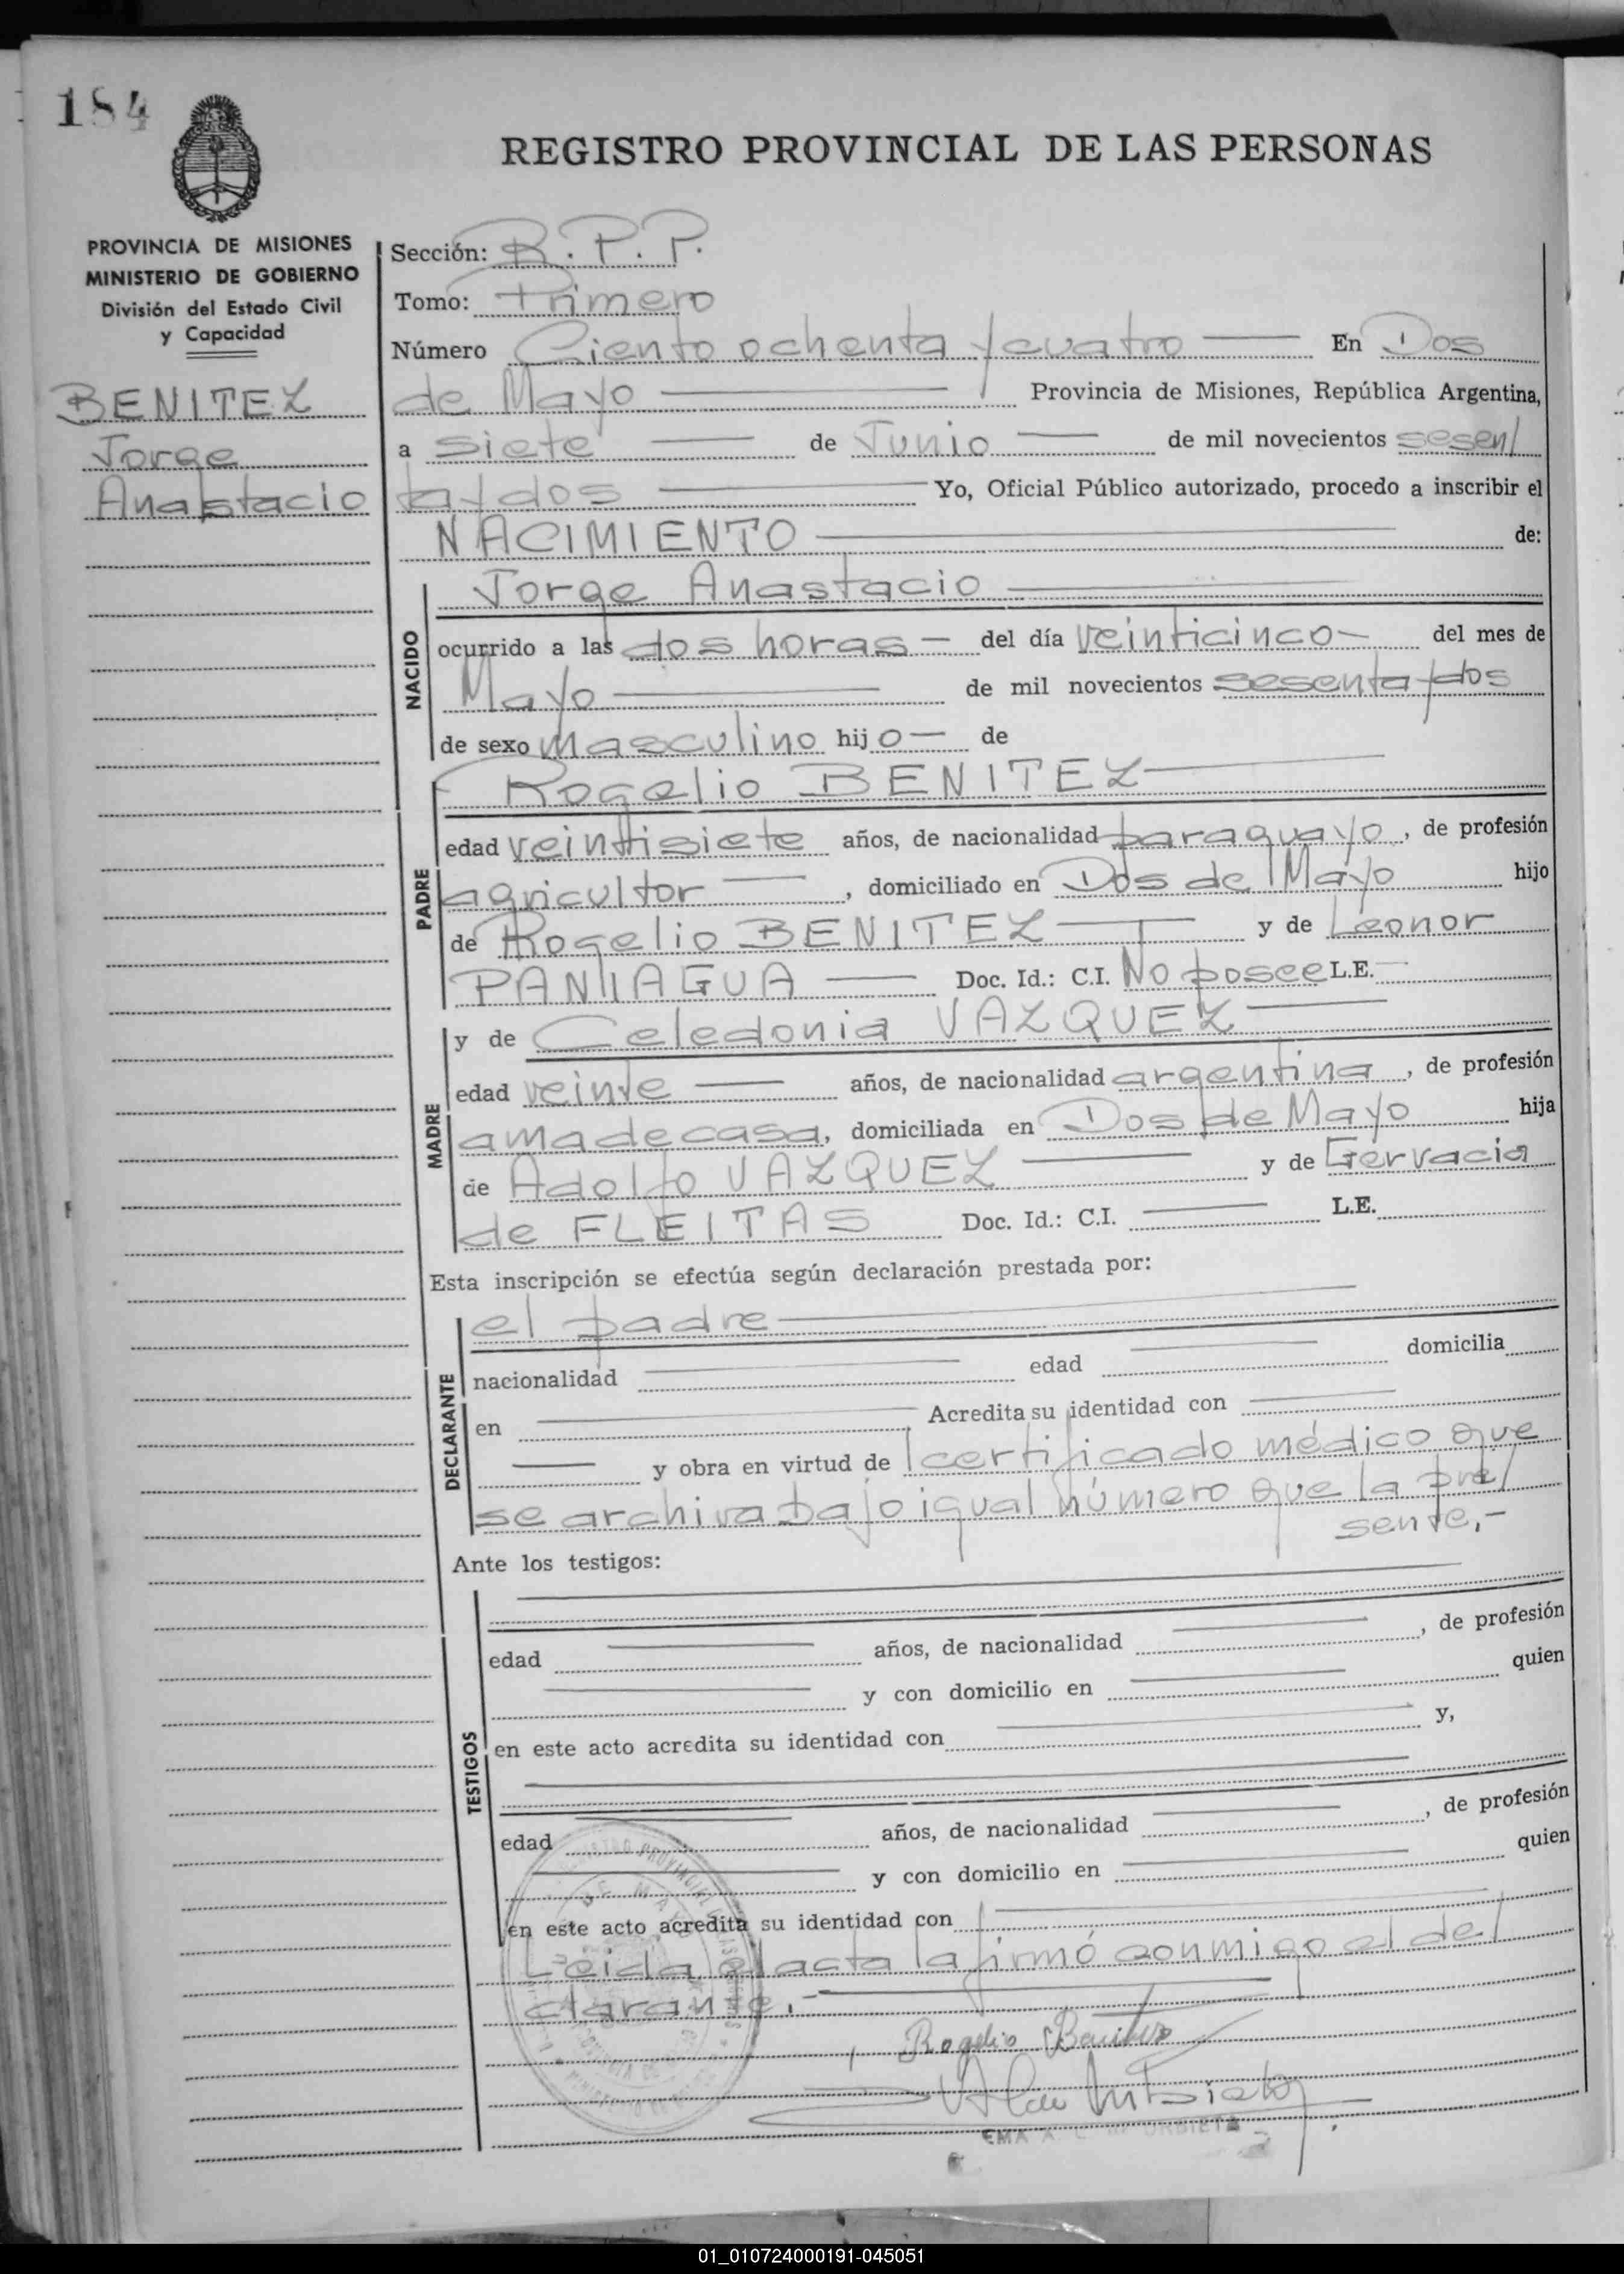 184
REGISTRO PROVINCIAL DE LAS PERSONAS
PROVINCIA DE MISIONES
MINISTERIO DE GOBIERNO
División del Estado Civil
y Capacidad
BENITEZ
Jorge
Anastacio
Sección: R.P.P.
Tomo: Primero
Número Ciento ochenta y cuatro En Dos
de Mayo Provincia de Misiones, República Argentina,
a siete de Junio de mil novecientos sesen/
ta y dos Yo, Oficial Público autorizado, procedo a inscribir el
NACIMIENTO de:
NACIDO
Jorge Anastacio
ocurrido a las dos horas — del día veinticinco — del mes de
Mayo de mil novecientos sesenta y dos
de sexo masculino hijo — de
PADRE
Rogelio BENITEZ
edad veintisiete años, de nacionalidad paraguayo, de profesión
agricultor, domiciliado en Dos de Mayo hijo
de Rogelio BENITEZ y de Leonor
PANIAGUA Doc. Id.: C.I. No posee L.E.
MADRE
y de Celedonia VAZQUEZ
edad veinte años, de nacionalidad argentina, de profesión
ama de casa, domiciliada en Dos de Mayo hija
de Adolfo VAZQUEZ y de Gervacia
de FLEITAS Doc. Id.: C.I. L.E.
Esta inscripción se efectúa según declaración prestada por:
DECLARANTE
el padre
nacionalidad edad domicilia
en Acredita su identidad con
y obra en virtud de certificado médico que
se archiva bajo igual número que la pre/
sente,-
Ante los testigos:
TESTIGOS
edad años, de nacionalidad , de profesión
y con domicilio en quien
en este acto acredita su identidad con y,
edad años, de nacionalidad , de profesión
y con domicilio en quien
en este acto acredita su identidad con
Leida el acta la firmó conmigo el de/
clarante.-
Rogelio Benitez
EMA A. C. DE URBIETA
01_010724000191-045051